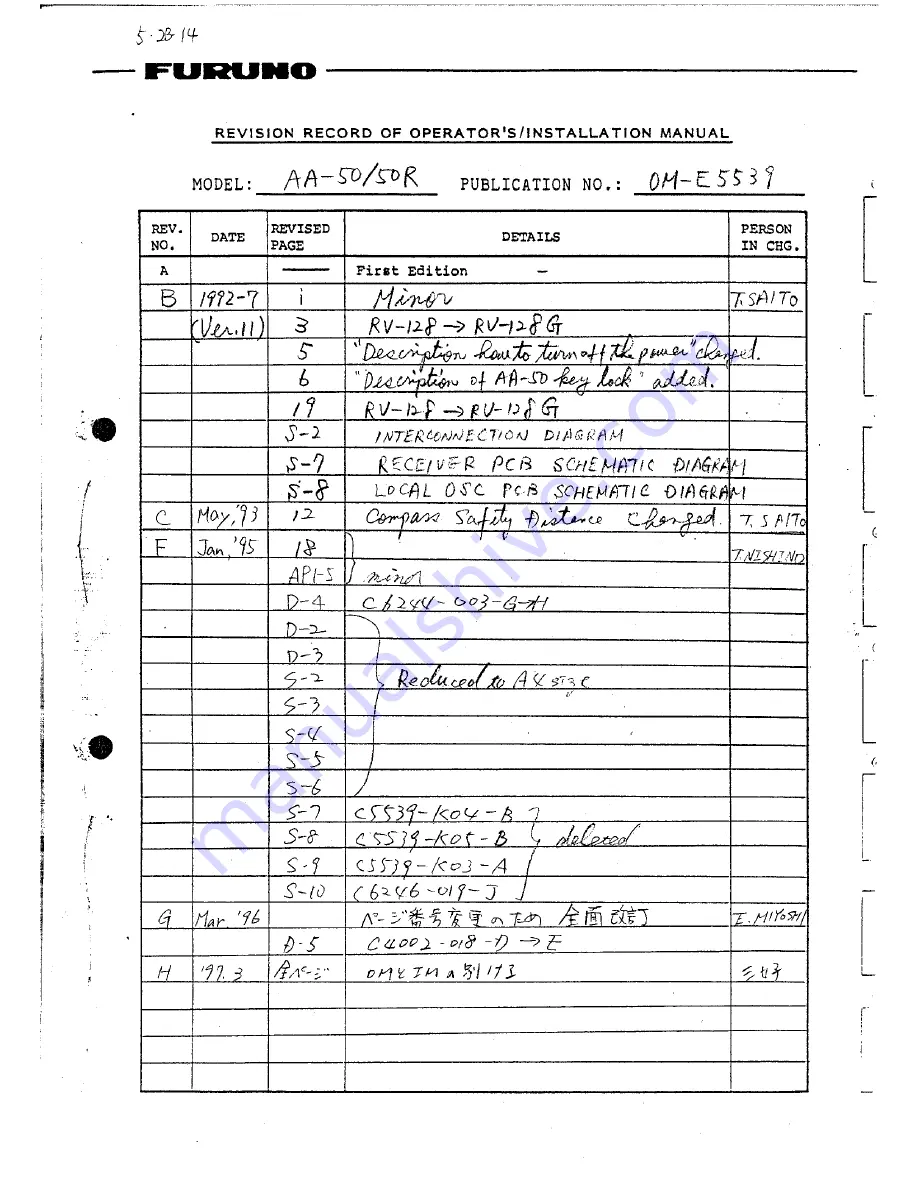 5-28-14
FURUNO
REVISION RECORD OF OPERATOR'S/INSTALLATION MANUAL
MODEL: AA-50/50R PUBLICATION NO.: OM-E5539
REV. NO. DATE REVISED PAGE DETAILS PERSON IN CHG.
A — First Edition —
B 1992-7 i Minor T.SAITO
(Ver.11) 3 RV-128 → RV-128G
5 "Description how to turn off the power" changed.
6 "Description of AA-50 key lock" added.
19 RV-128 → RV-128G
S-2 INTERCONNECTION DIAGRAM
S-7 RECEIVER PCB SCHEMATIC DIAGRAM
S-8 LOCAL OSC PCB SCHEMATIC DIAGRAM
C May,'93 12 Compass Safety Distance Changed. T.SAITO
F Jan,'95 18 T.NISHINO
AP1-5 minor
D-4 C6244-003-G→H
D-2
D-3
S-2 Reduced to A4 size
S-3
S-4
S-5
S-6
S-7 C5539-K04-B
S-8 C5539-K05-B deleted
S-9 C5539-K03-A
S-10 C6246-019-J
G Mar '96 ページ番号変更のため 全面改訂 E.MIYOSHI
D-5 C4002-018-D → E
H '97.3 全ページ OMとIMの別け 三好
manualshive.com